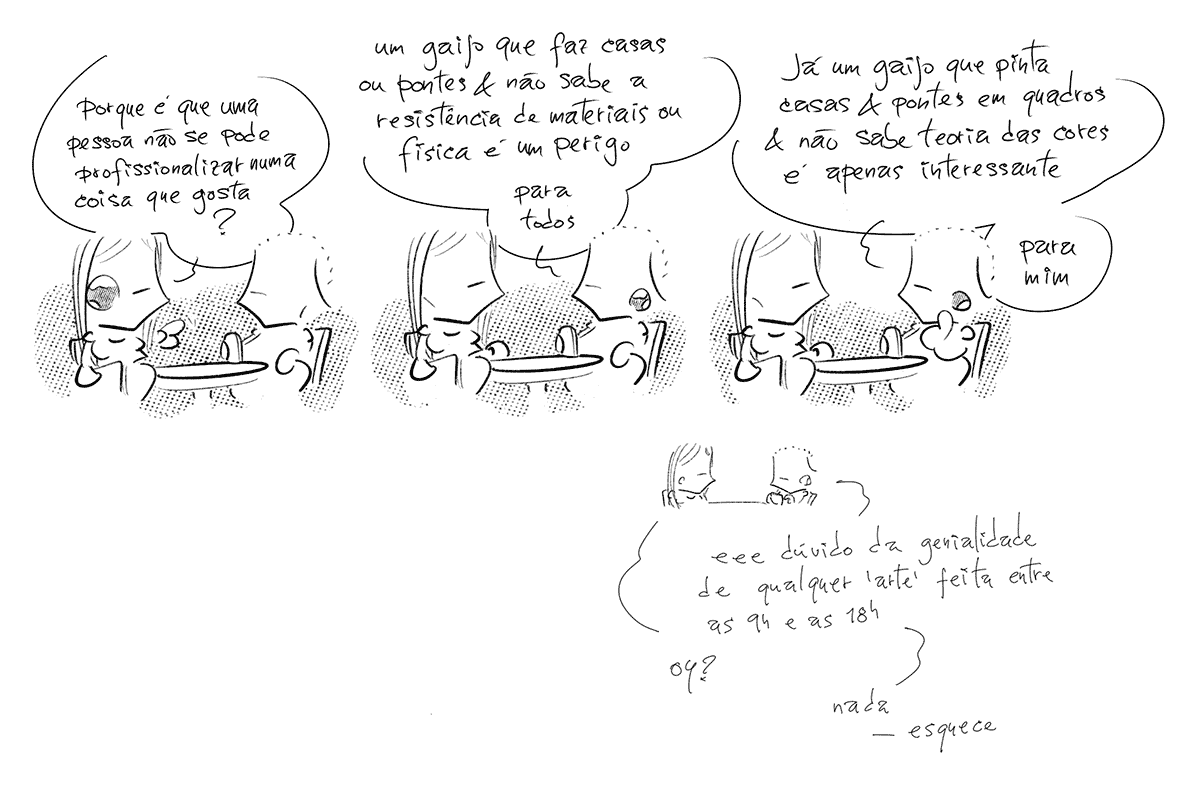 Porque é que uma
pessoa não se pode
profissionalizar numa
coisa que gosta
?
um gaijo que faz casas
ou pontes & não sabe a
resistência de materiais ou
física é um perigo
para
todos
Já um gaijo que pinta
casas & pontes em quadros
& não sabe teoria das cores
é apenas interessante
para
mim
eee dúvido da genialidade
de qualquer 'arte' feita entre
as 9h e as 18h
oq?
nada
— esquece